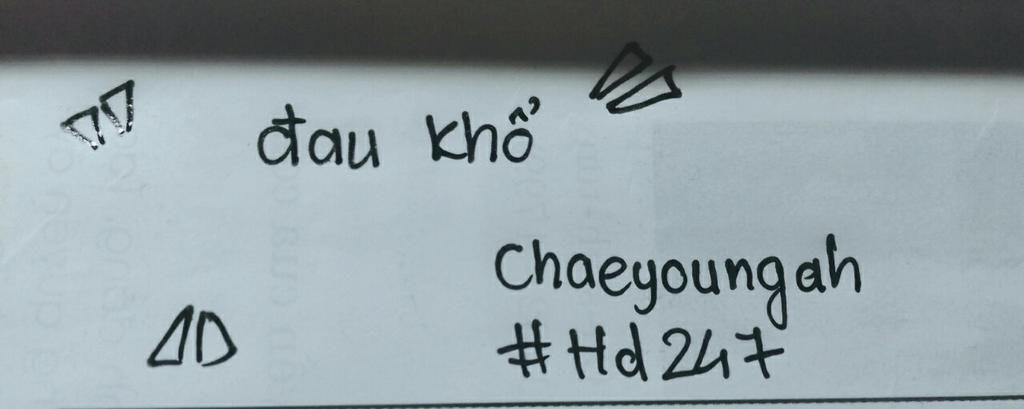 đau khổ
Chaeyoungah
#Hd247